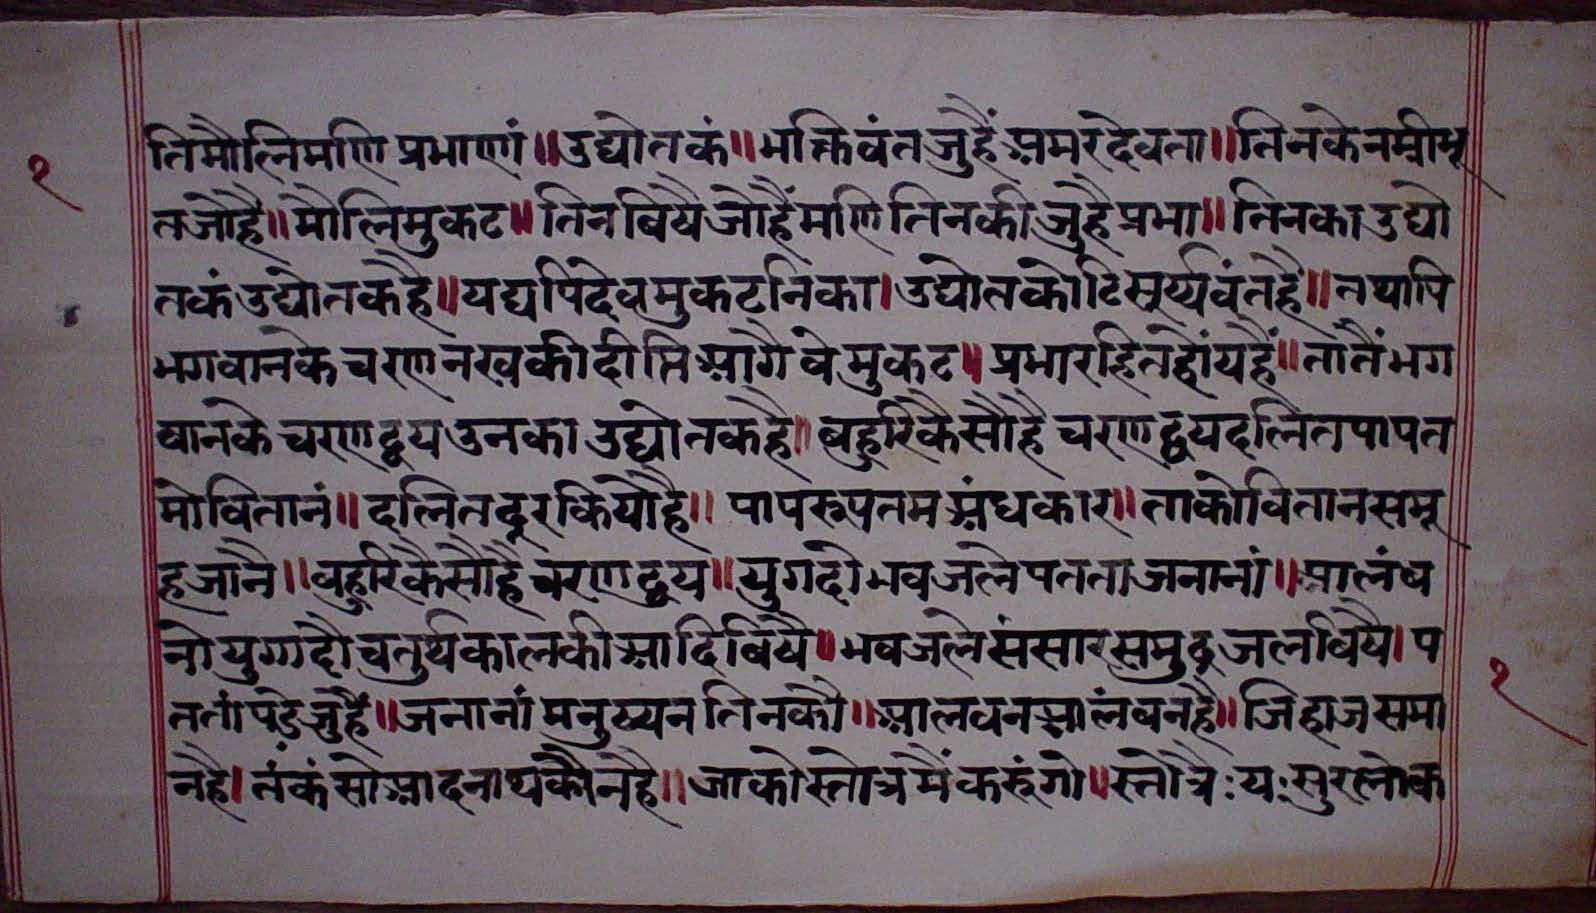 तिमौलिमणिप्रभाणां॥उद्योतकं॥भक्तिवंतजुहैंअमरदेवता॥तिनकेनम्रीभू
१
तजौहै॥मौलिमुकट॥तिनबिषैजौहैंमणितिनकीजुहैप्रभा॥तिनकाउद्यो
तकंउद्योतकहै॥यद्यपिदेवमुकटनिका।उद्योतकोटिसूर्य्यवंतहै॥तथापि
भगवानकेचरणनखकीदीप्तिआगैवेमुकट॥प्रभारहितहोंयहैं॥तातैंभग
वानकेचरणद्वयउनकाउद्योतकहै॥बहुरिकैसौहैचरणद्वयदलितपापत
मोवितानं॥दलितदूरकियौहै॥पापरूपतमअंधकार॥ताकोवितानसमू
हजानै॥बहुरिकैसौहैचरणद्वय॥युगदोभवजलेपतताजनानां॥आलंब
नोयुगादौचतुर्थकालकीआदिबिषै॥भवजलेसंसारसमुद्रजलविषै।प
१
ततांपडेजुहैं॥जनानांमनुष्यनतिनकौ॥आलवनआलंबनहै॥जिहाजसमा
नहै।तंकंसोआदनाथकौनहै॥जाकोस्तोत्रमैंकरूंगो॥स्तोत्रैःयःसुरलोक